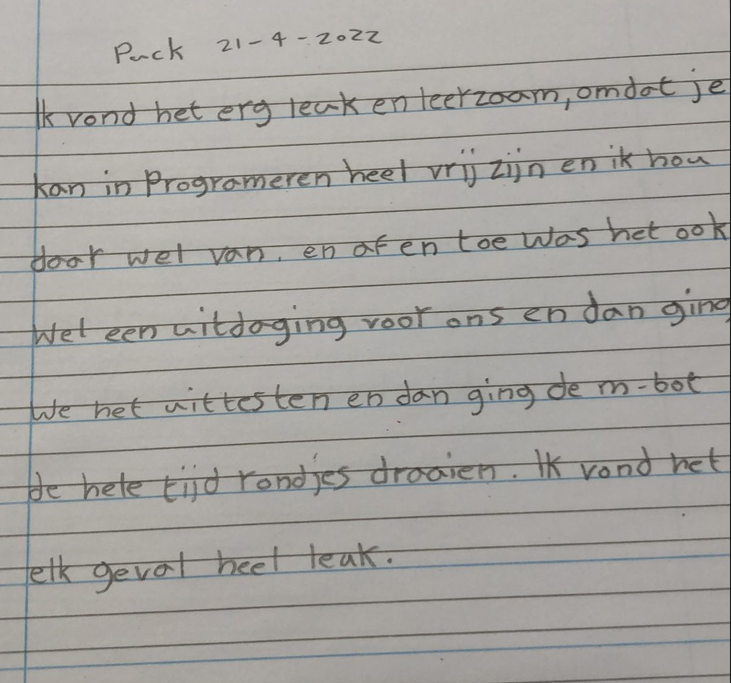 Puck 21-4-2022
Ik vond het erg leuk en leerzaam, omdat je
kan in Programeren heel vrij zijn en ik hou
daar wel van. en af en toe was het ook
wel een uitdaging voor ons en dan ging
we het uittesten en dan ging de m-bot
de hele tijd rondjes draaien. Ik vond het
elk geval heel leuk.